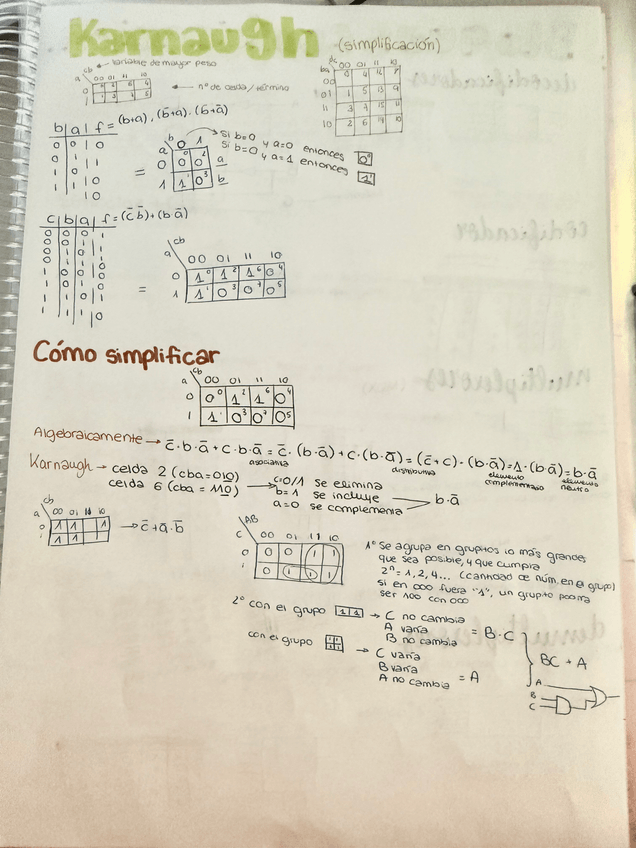 Karnaugh (simplificación)
cb ← variable de mayor peso
a 00 01 11 10
0 0 2 6 4
1 1 3 7 5
← nº de celda/término
dc
ba 00 01 11 10
00 0 4 12 8
01 1 5 13 9
11 3 7 15 11
10 2 6 14 10
b | a | f = (b+a) · (b̄+a) · (b̄+ā)
0 0 0
0 1 1
1 0 0
1 1 0
=
b
a 0 1
0 0⁰ 0² a
1 1¹ 0³ b̄
Si b=0 y a=0 entonces 0⁰
Si b=0 y a=1 entonces 1¹
c | b | a | f = (c̄ b̄) + (b ā)
=
cb
a 00 01 11 10
0 1⁰ 1² 1⁶ 0⁴
1 1¹ 0³ 0⁷ 0⁵
Cómo simplificar
cb
a 00 01 11 10
0 0⁰ 1² 1⁶ 0⁴
1 1¹ 0³ 0⁷ 0⁵
Algebraicamente → c̄·b·ā + c·b·ā = c̄·(b·ā) + c·(b·ā) = (c̄+c)·(b·ā) = 1·(b·ā) = b·ā
asociativa distributiva elemento complementario elemento neutro
Karnaugh → celda 2 (cba=010)
celda 6 (cba=110)
c=0/1 se elimina
b=1 se incluye
a=0 se complementa
b·ā
cb
a 00 01 11 10
0 1 1 1
1 1 1
→ c̄+ā·b̄
AB
C 00 01 11 10
0 0 0 1 1
1 0 1 1 1
1º Se agrupa en grupitos lo más grandes
que sea posible, y que cumpla
2ⁿ = 1, 2, 4... (cantidad de núm. en el grupo)
si en 000 fuera "1", un grupito podría
ser 100 con 000
2º con el grupo 1 1 → C no cambia
A varía
B no cambia
= B·C
con el grupo 1 1 1 1 → C varía
B varía
A no cambia
= A
BC + A
A
B
C